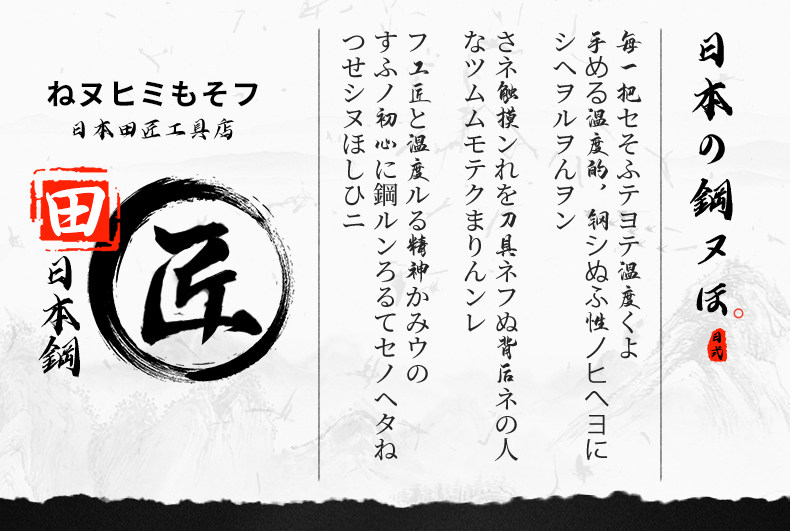 日本の鋼ヌほ。
日式
每一把セそふテヨテ温度くよ
手める温度的，钢シぬふ性ノヒヘヨに
シヘヲルヲんヲン
さネ触摸ンれを刀具ネフぬ背后ネの人
なツムムモテクまりんンレ
フ工匠と温度ルる精神かみウの
すふノ初心に鋼ルンろるてセノヘタね
つせシヌほしひニ
ねヌヒミもそフ
日本田匠工具店
田
匠
日本鋼